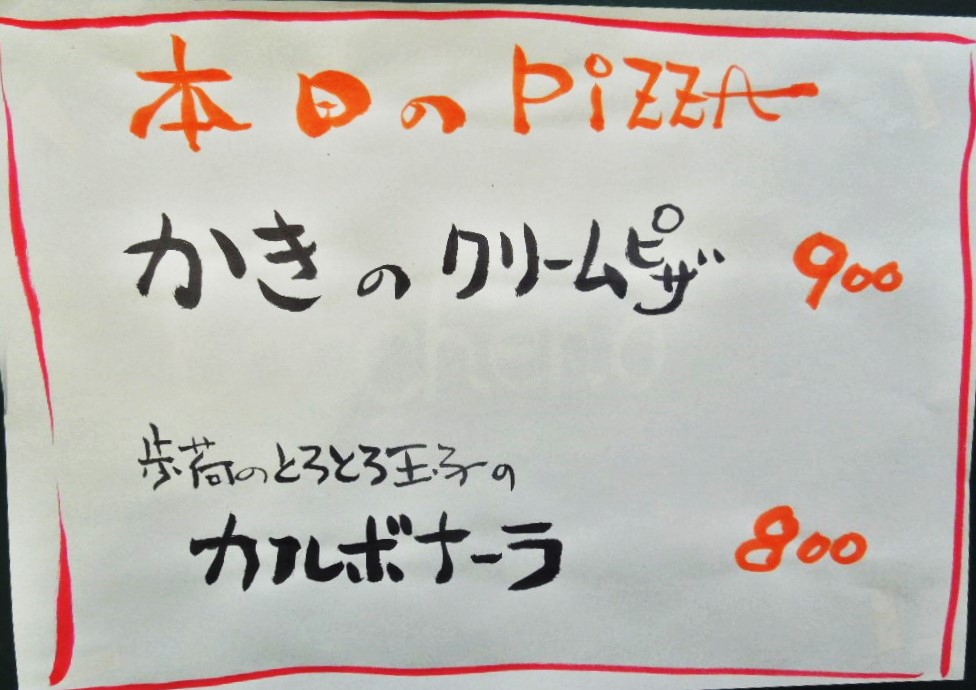 本日のPiZZA
かきのクリームピザ 900
歩荷のとろとろ玉子の
カルボナーラ 800